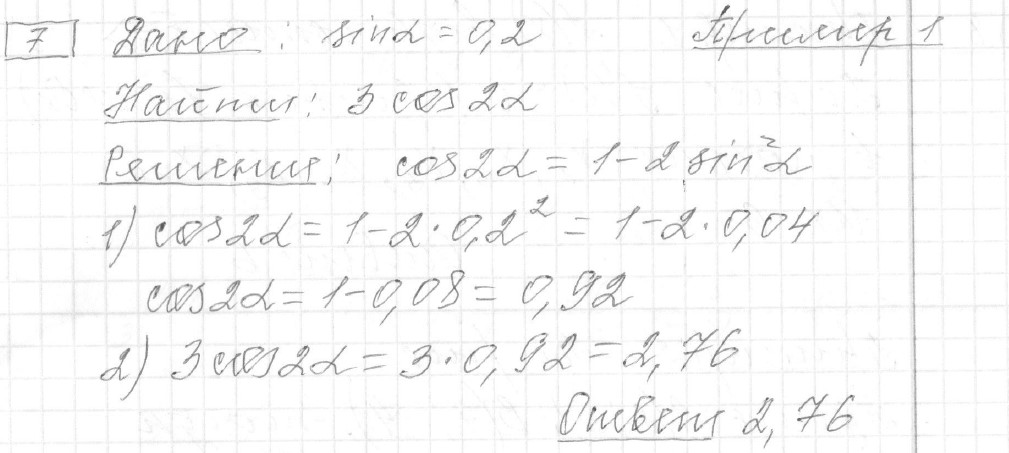 7 Дано: sinα = 0,2 Пример 1
Найти: 3 cos2α
Решение: cos2α = 1 - 2 sin²α
1) cos2α = 1 - 2 · 0,2² = 1 - 2 · 0,04
cos2α = 1 - 0,08 = 0,92
2) 3 cos2α = 3 · 0,92 = 2,76
Ответ 2,76